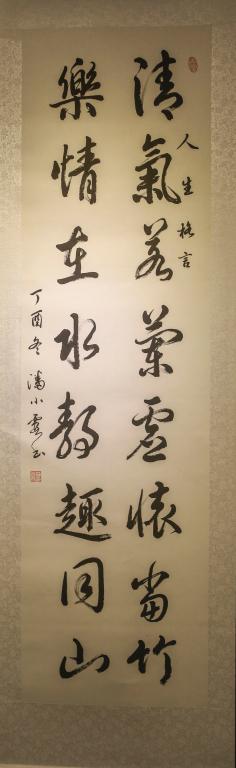 清氣若蘭虛懷當竹
人生格言
樂情在水靜趣同山
丁酉冬潘小雲書